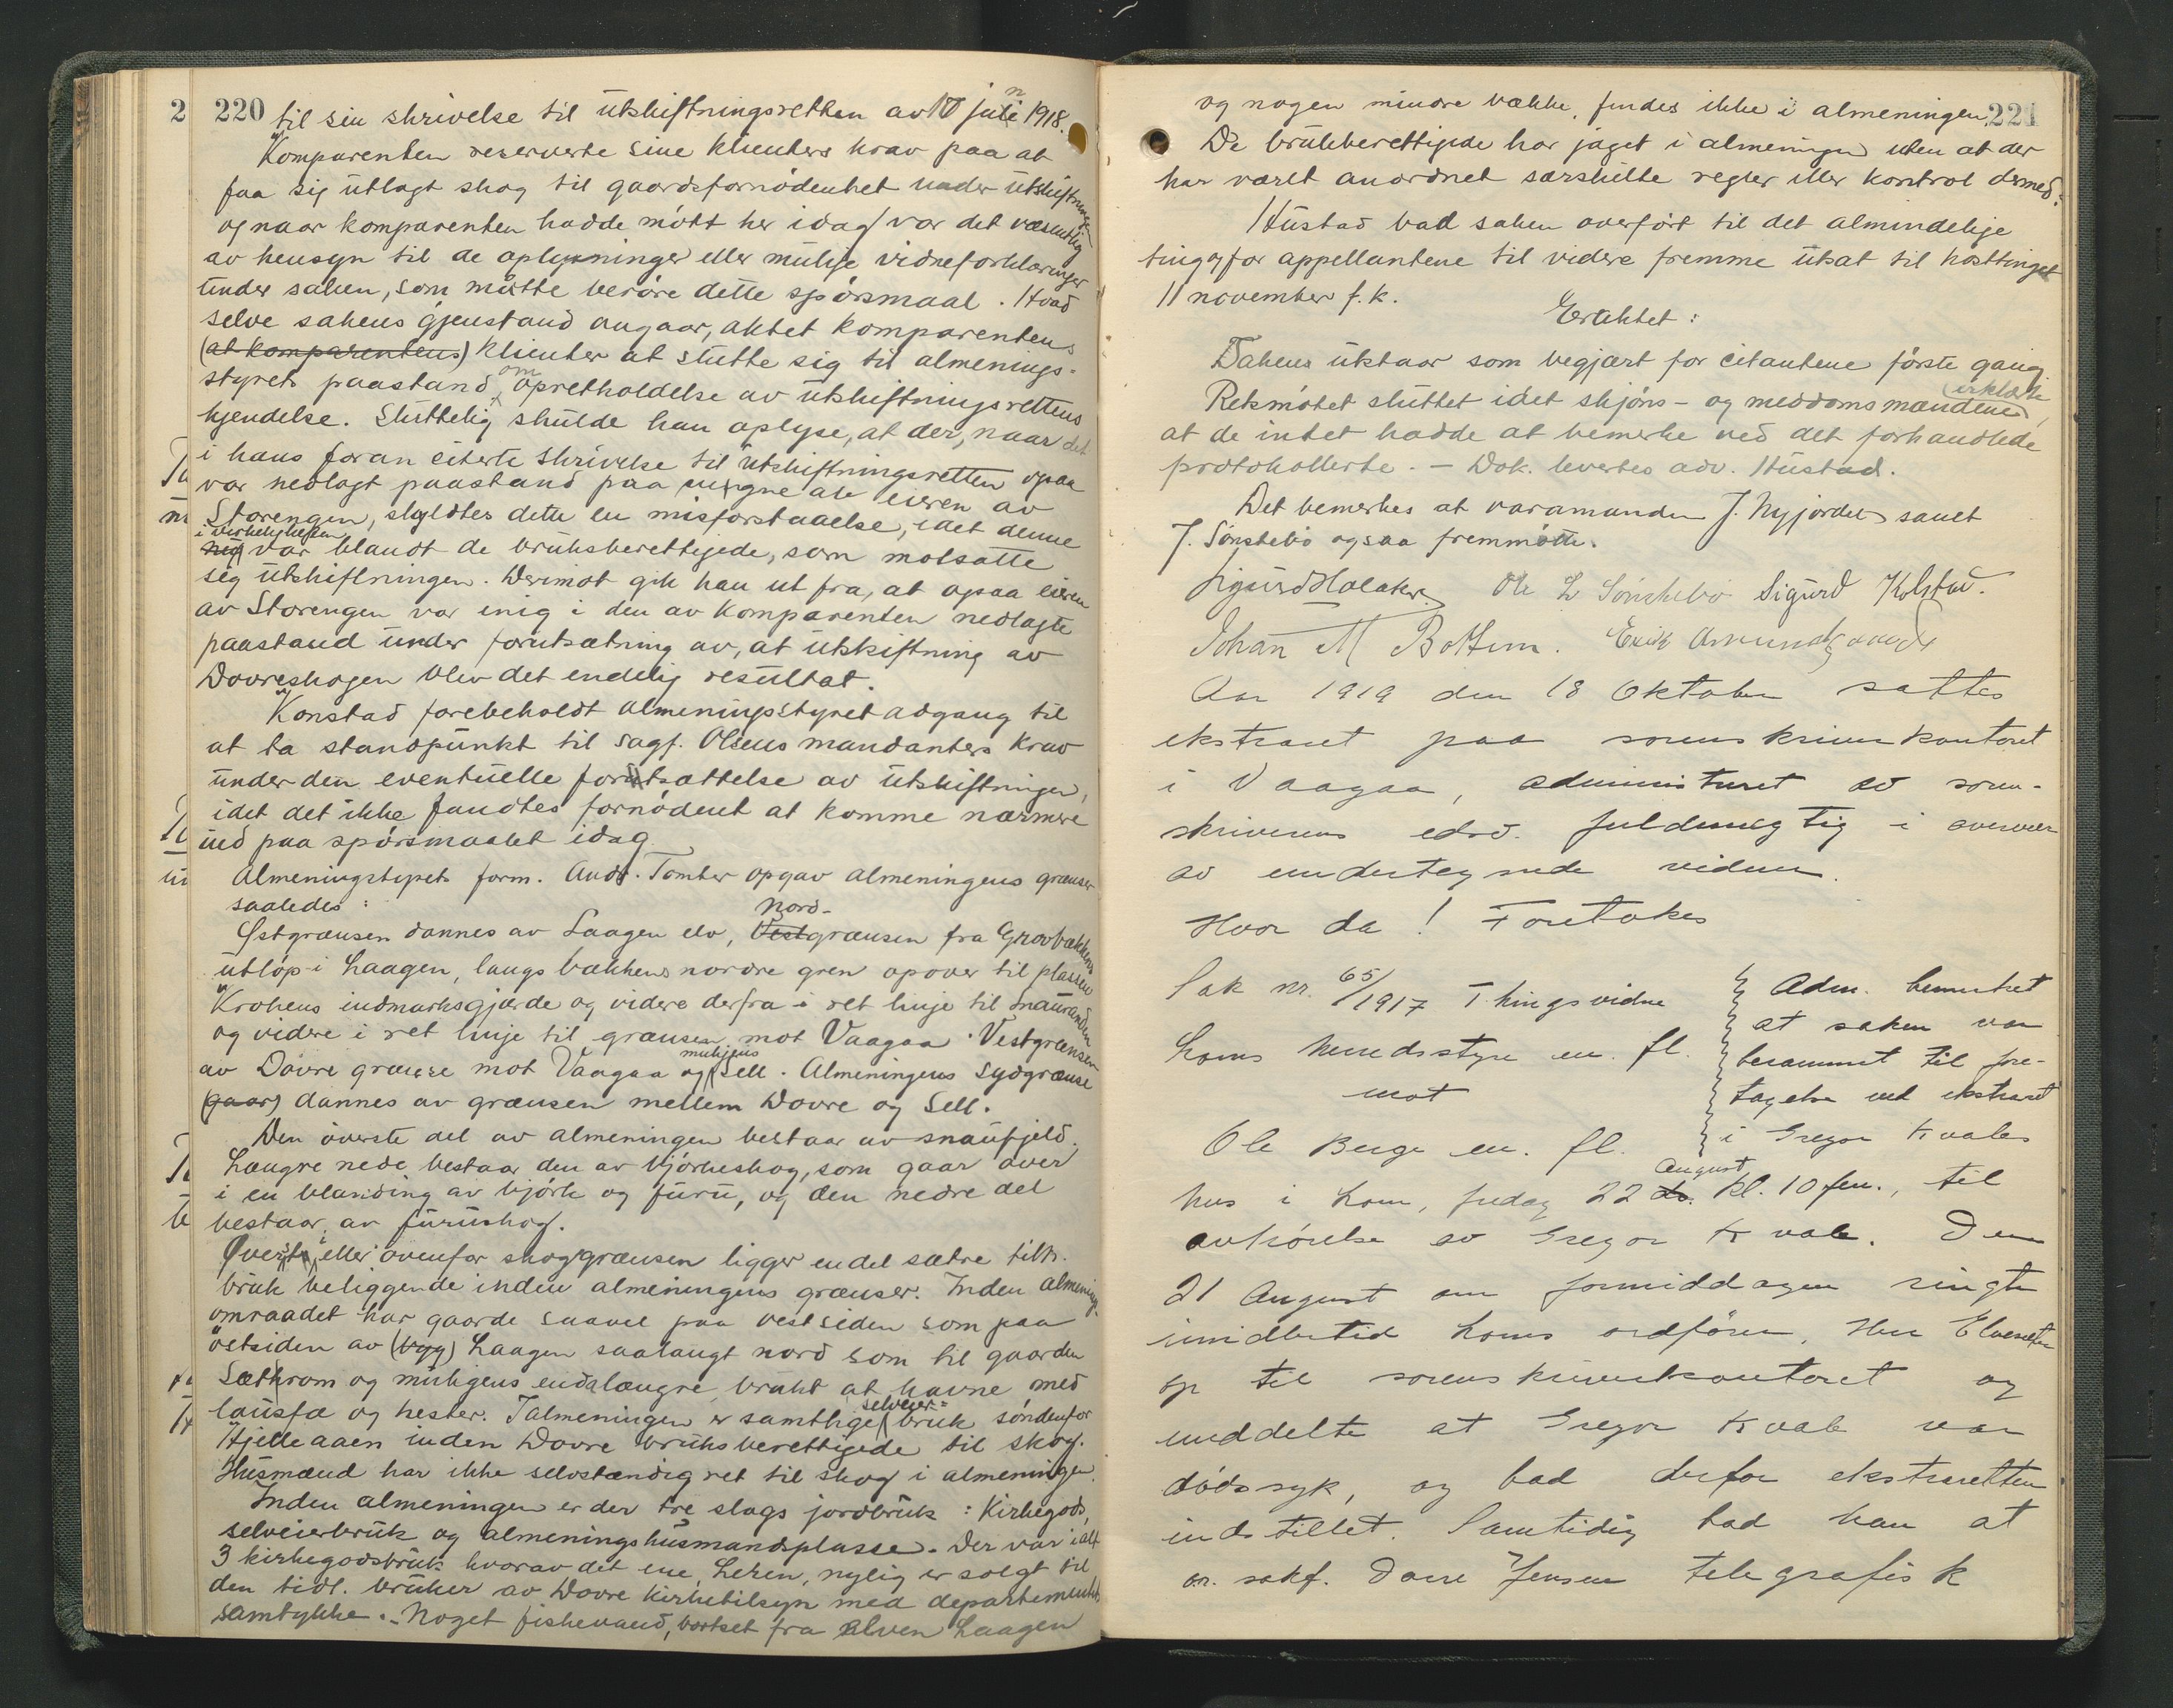 220 til sin skrivelse til utskiftningsretten av 10 juni 1918.
Komparenten reserverte sine klienters krav paa at
faa sig utlagt skog til gaardsfornødenhet under utskiftningen
og naar komparenten hadde møtt her idag var det væsentlig
av hensyn til de oplysninger eller mulige vidneforklaringer
under saken, som maatte berøre dette spørsmaal. Hvad
selve sakens gjenstand angaar, aktet komparentens
(at komparentens) klienter at støtte sig til almenings-
styrets paastand om opretholdelse av utskiftningsrettens
kjendelse. Sluttelig skulde han oplyse, at der, naar det
i hans foran citerte skrivelse til utskiftningsretten ogsaa
var nedlagt paastand paa vegne av eieren av
Storengen, skyldtes dette en misforstaaelse, idet denne
i virkeligheten var blandt de bruksberettigede, som motsatte
sig utskiftningen. Derimot gik han ut fra, at ogsaa eieren
av Storengen var enig i den av komparenten nedlagte
paastand under forutsætning av, at utskiftning av
Dovreskogen blev det endelig resultat.
Konstad forebeholdt almeningsstyret adgang til
at ta standpunkt til sagf. Olsens mandanters krav
under den eventuelle forutsættelse av utskiftningen,
idet det ikke fandtes fornødent at komme nærmere
ind paa spørsmaalet idag.
Almeningstyrets form. Andr. Tomter opgav almeningens grænser
saaledes:
Østgrænsen dannes av Laagen elv, Nord-grænsen fra Grovbækkens
utløp i Laagen, langs bækkens nordre gren opover til plassen
Krokens indmarksgjærde og videre derfra i ret linje til
og videre i ret linje til grænsen mot Vaagaa. Vestgrænsen
av Dovre grænse mot Vaagaa og muligens Sell. Almeningens sydgrænse
(gaar) dannes av grænsen mellem Dovre og Sell.
Den øverste del av almeningen bestaar av snaufjeld.
Længre nede bestaar den av bjørkeskog, som gaar over
i en blanding av bjørk og furu, og den nedre del
bestaar av furuskog.
Øverst eller ovenfor skoggrænsen ligger endel sætre tilh.
bruk beliggende inden almeningens grænser. Inden almenings-
omraadet har gaarde saavel paa vestsiden som paa
østsiden av (byg) Laagen saalangt nord som til gaarden
og muligens endda længre brukt at havne med
lausfæ og hester. I almeningen er samtlige selveier-bruk søndenfor
Hjelleaaen inden Dovre bruksberettigede til skog.
Husmænd har ikke selvstændig ret til skog i almeningen.
Inden almeningen er der tre slags jordbruk: Kirkegods,
selveierbruk og almeningshusmandsplasse. Der var i alt
3 kirkegodsbruk hvorav det ene, nylig er solgt til
den tidl. bruker av Dovre kirketilsyn med departementets
samtykke. - Noget fiskevand, bortset fra elven Laagen
221
og nogen mindre bække, findes ikke i almeningen.
De brukberettigede har jaget i almeningen uten at der
har været anordnet særskilte regler eller kontrol dermed.
Hustad bad saken overført til det almindelige
ting og for appellantene til videre fremme utsat til høsttinget
11 november f. k.
Eraktet:
Saken utstaar som begjært for citantene første gang.
Retsmøtet sluttet idet skjøns- og meddomsmændene erklærte
at de intet hadde at bemerke ved det forhandlede
protokollerte. - Dok. levertes adv. Hustad.
Det bemerkes at varamanden J. Nyjordet samt
J. Sønstebø ogsaa fremmøtte.
Sigurd Holaker Ole L Sønstebø Sigurd Kolstad.
Johan M Bottem. Erik
Aar 1919 den 18 oktober sattes
ekstraret paa sorenskriverkontoret
i Vaagaa, administreret av soren-
skriverens edsv. fuldmægtig i overvær
av undertegnede vidner.
Hvor da! Foretokes
Sak nr. 65/1917 Thingsvidne
Loms herredsstyre m. fl.
mot
Ole Berge m. fl.
Adm. bemerket
at saken var
berammet til fore-
tagelse ved ekstraret
i Gregor Kvales
hus i Lom, fredag 22 august kl. 10 fm., til
avhørelse av Gregor Kvale. Den
21 August om formiddagen ringte
imidlertid Loms ordfører, Herr
op til sorenskriverkontoret og
meddelte at Gregor Kvale var
dødssyk, og bad derfor ekstraretten
indstillet. Samtidig bad han at
o.r. sakf. Jensen telegrafisk